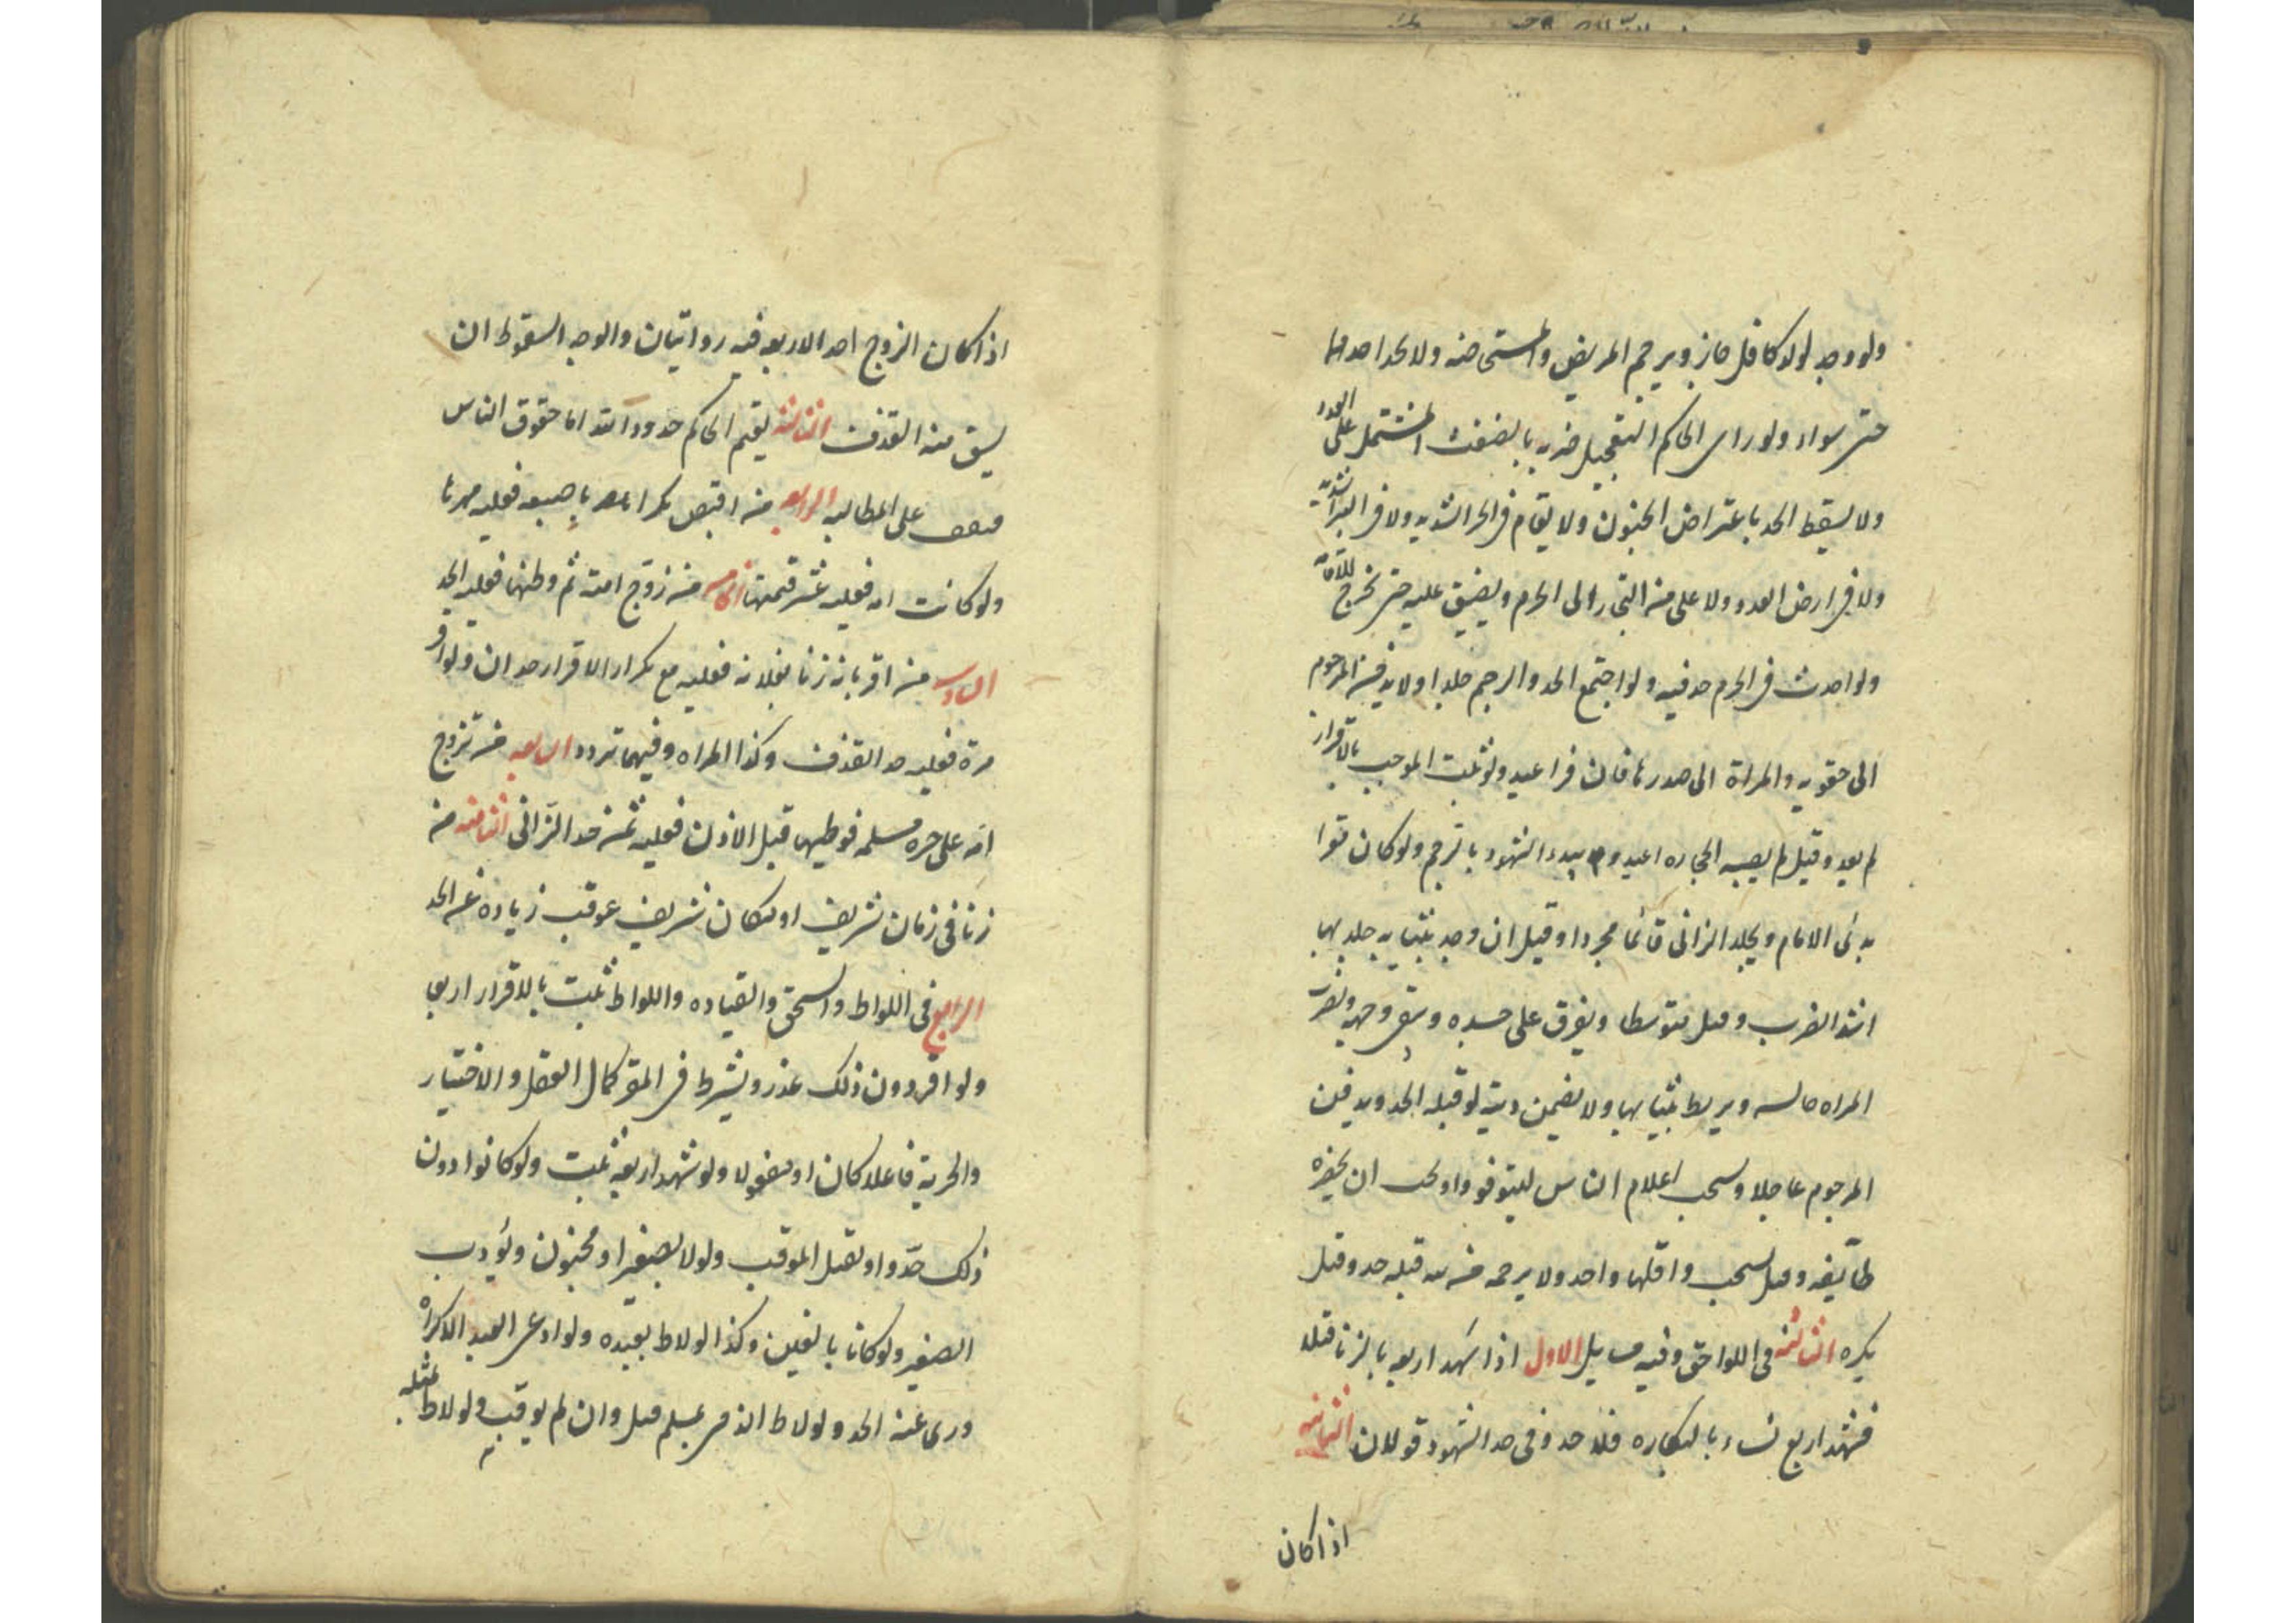 ولو وجد لولد كافل جاز ويرجم المريض والمستحاضه ولا يحد احدهما
حتى يبراء ولو راى الحاكم التعجيل ضربه بالضغث المشتمل على العدد
ولا يسقط الحد باعتراض الجنون ولا يقام فى الحر الشديد ولا فى البرد الشديد
ولا فى ارض العدو ولا على من التجى الى الحرم ويضيق عليه حتى يخرج للاقامه
ولو احدث فى الحرم حد فيه ولو اجتمع الحد والرجم جلد اولا يدفن المرجوم
الى حقويه والمراة الى صدرها فان فر اعيد ولو ثبت الموجب بالاقرار
لم يعد وقيل لم يصبه الحجاره اعيد و يبدء الشهود بالرجم ولو كان مقرا
بدئ الامام ويجلد الزانى قائما مجردا وقيل ان وجد بثيابه جلد بها
اشد الضرب وقيل متوسطا ويفرق على جسده ويتقى وجهه ويضرب
المراه جالسه ويربط ثيابها ولا يضمن ديته لو قتله الحد ويدفن
المرجوم عاجلا ويستحب اعلام الناس ليتوفروا ويجب ان يحضره
طائفه وقيل يستحب واقلها واحد ولا يرجمه من لله قبله حد وقيل
يكره الثالثه فى اللواحق وفيه مسايل الاول اذا شهد اربعه بالزنا قبلا
فشهد اربع نساء بالبكاره فلا حد وفى حد الشهود قولان الثانيه
اذا كان
اذا كان الزوج احد الاربعه فيه روايتان والوجه السقوط ان
يسبق منه القذف الثالثه يقيم الحاكم حدود الله اما حقوق الناس
فيقف على المطالبه الرابعه من افتض بكرا باصبعه فعليه مهرها
ولو كانت امه فعليه عشر قيمتها الخامسه من زوج امته ثم وطئها فعليه الحد
السادسه من اقر بانه زنا بفلانه فعليه مع تكرار الاقرار حدان ولو اقر
مرة فعليه حد القذف وكذا المراه وفيهما تردد السابعه من تزوج
امه على حره مسلمه فوطيها قبل الاذن فعليه ثمن حد الزانى الثامنه من
زنا فى زمان شريف او مكان شريف عوقب زيادة عن الحد
الرابع فى اللواط والسحق والقياده واللواط ثبت بالاقرار اربعا
ولو اقر دون ذلك عزر ويشترط فى المقر كمال العقل والاختيار
والحرية فاعلا كان او مفعولا ولو شهد اربعه ثبت ولو كانوا دون
ذلك حدوا ويقتل الموقب ولو لا بصغير او مجنون ويؤدب
الصغير ولو كانا بالغين وكذا لو لاط بعبده ولو ادعى العبد الاكراه
درى عنه الحد ولو لاط الذمى بمسلم قتل وان لم يوقب ولو لاط بمثله